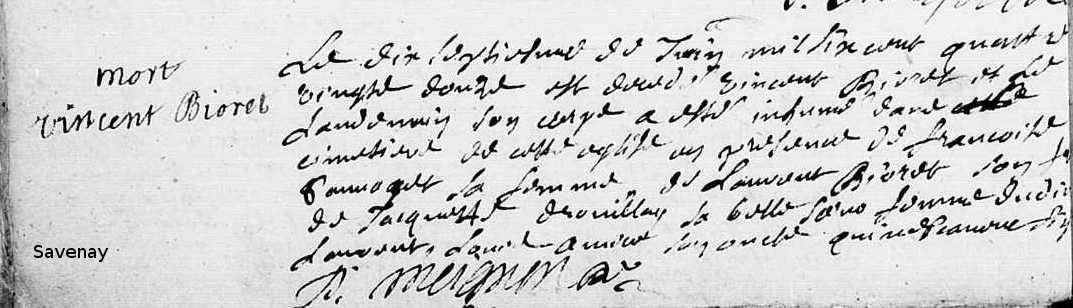 mort
vincent Bioret
Le dix septiesme de Juin mil six cent quattre
vingts douze est decedé vincent Bioret et le
landemain son corps a esté inhumé dans
cimetiere de cette eglise en presence de francoise
sa femme de Laurent Bioret son
de Jacquette drouillay sa belle soeur femme dudit
Laurent, son oncle qui ne
Savenay